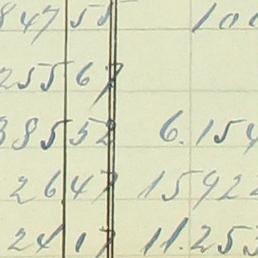 847 55 100
255 67
885 52 6.154
26 47 15922
24 17 11.253